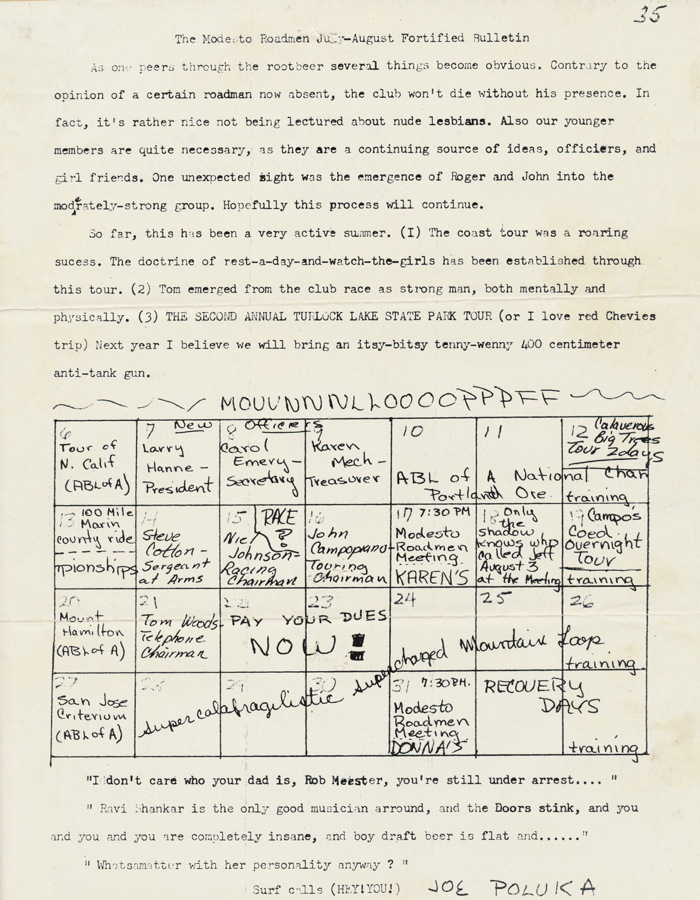 35
The Modesto Roadmen July-August Fortified Bulletin
As one peers through the rootbeer several things become obvious. Contrary to the
opinion of a certain roadman now absent, the club won't die without his presence. In
fact, it's rather nice not being lectured about nude lesbians. Also our younger
members are quite necessary, as they are a continuing source of ideas, officiers, and
girl friends. One unexpected sight was the emergence of Roger and John into the
moderately-strong group. Hopefully this process will continue.
So far, this has been a very active summer. (I) The coast tour was a roaring
sucess. The doctrine of rest-a-day-and-watch-the-girls has been established through
this tour. (2) Tom emerged from the club race as strong man, both mentally and
physically. (3) THE SECOND ANNUAL TURLOCK LAKE STATE PARK TOUR (or I love red Chevies
trip) Next year I believe we will bring an itsy-bitsy tenny-wenny 400 centimeter
anti-tank gun.
6
Tour of
N. Calif
(ABL of A)
7 New
Larry
Hanne-
President
8 Officiers
Carol
Emery-
Secretary
9
Karen
Mech-
Treasurer
10
11
ABL of A National Chan
Portland Ore.
12 Calaveras
Big Trees
Tour 2days
training
13 100 Mile
Marin
county ride
mpionships
14
Steve
Cotton-
Sergeant
at Arms
15
RACE
?
Nick
Johnson-
Racing
Chairman
16
John
Campopiano-
Touring
Chairman
17 7:30 PM
Modesto
Roadmen
Meeting
KAREN'S
18 Only
the
shadow
knows who
called Jeff
August 3
at the Meeting
19 Campos
Coed
Overnight
Tour
training
20
Mount
Hamilton
(ABL of A)
21
Tom Woods-
Telephone
Chairman
22
23
PAY YOUR DUES
NOW!
24
25
26
training
27
San Jose
Criterium
(ABL of A)
28
29
30
Supercalafragilistic supercharged Mountain Loop
31 7:30PM.
Modesto
Roadmen
Meeting
DONNA'S
RECOVERY
DAYS
training
"I don't care who your dad is, Rob Meester, you're still under arrest.... "
" Ravi Shankar is the only good musician arround, and the Doors stink, and you
and you and you are completely insane, and boy draft beer is flat and......"
" Whatsamatter with her personality anyway ? "
Surf calls (HEY!YOU!) JOE POLUKA